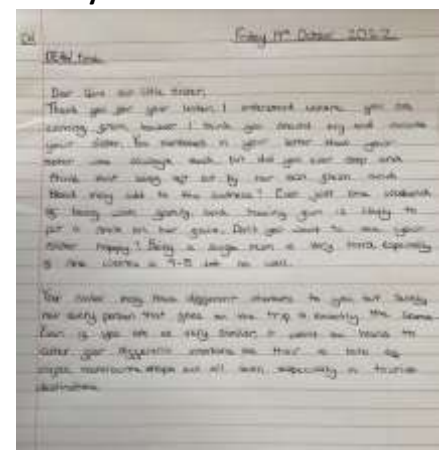 Friday 14th October 2022
DEAR
Dear Give our little sister,
Thank you for your letter. I understand where you are
coming from, however I think you should try and invite
your sister. You mentioned in your letter that your
sister was always sad, but did you ever stop and
think that being left out by her own and
blood may add to the sadness? Even just one weekend
of being with family and having fun is likely to
put a smile on her face. Don't you want to see your
sister happy? Being a single mum is very hard, especially
if she works a 9-5 job as well.
Your sister may have different interests to you but surely
not every person that goes on the trip is exactly the same.
Even if you are all very similar, it won't be hard to
cater your different interests as there is lots of
especially in tourist
destinations.